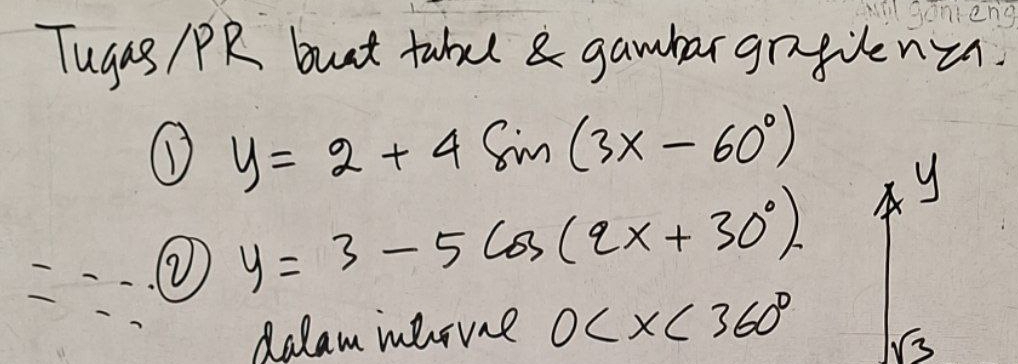 Tugas/PR buat tabel & gambar grafiknya.
① y = 2 + 4 Sin (3x – 60°)
② y = 3 – 5 Cos (2x + 30°).
dalam interval 0 < x < 360°
y
√3